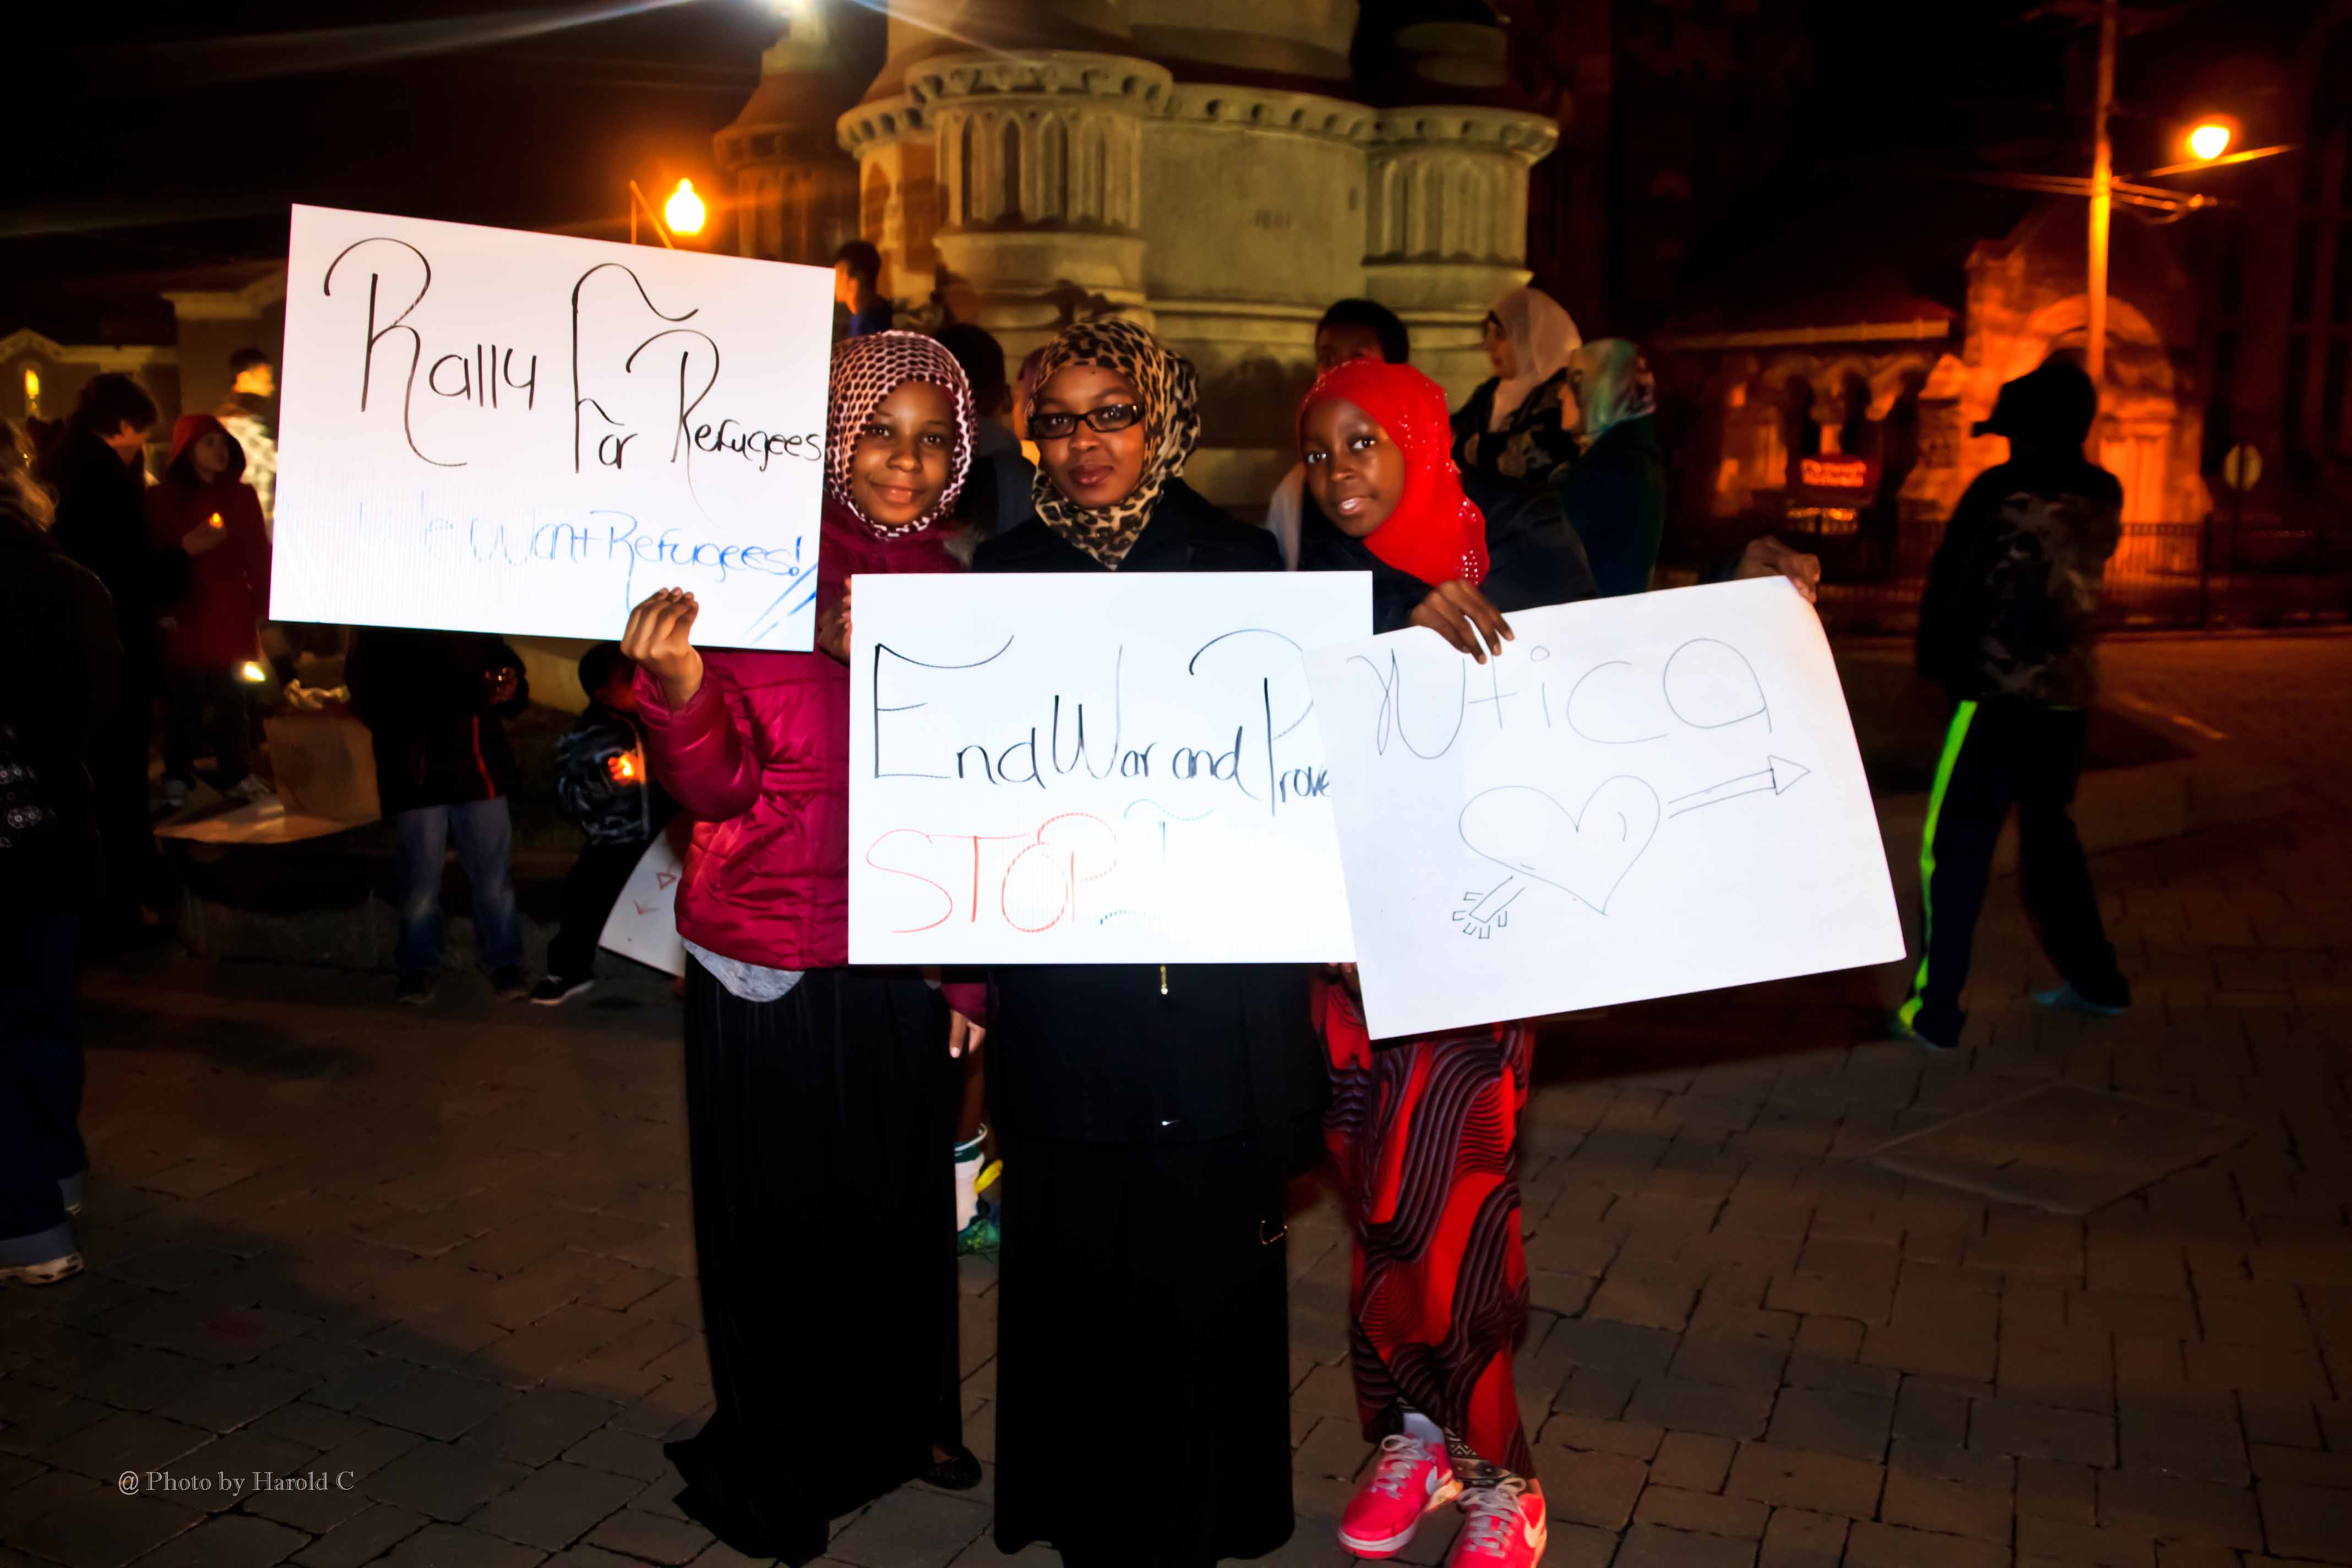 Rally For Refugees
We Want Refugees!
End War and Prove
STOP T
Utica
@ Photo by Harold C